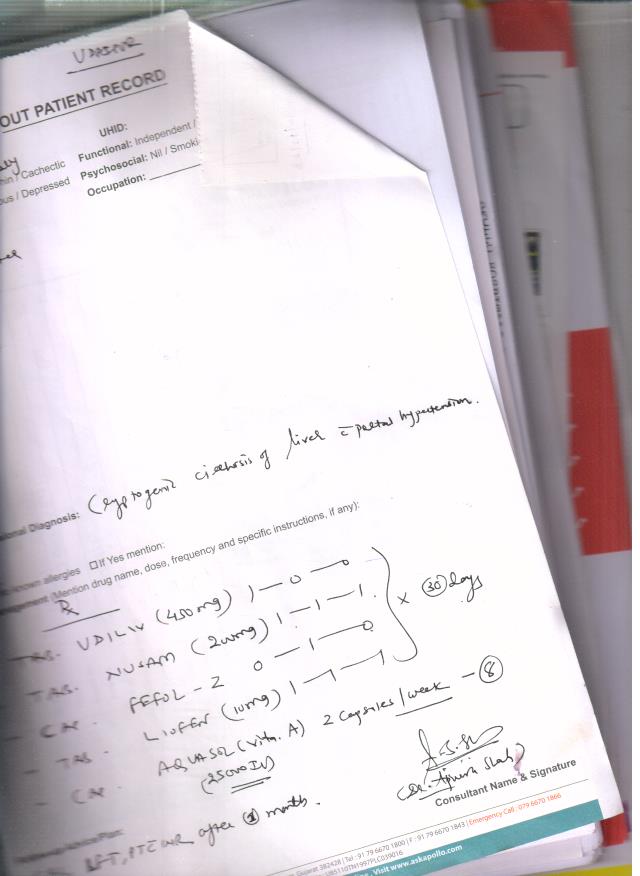 UDAIPUR
OUT PATIENT RECORD
UHID:
Functional: Independent /
hin / Cachectic
Psychosocial: Nil / Smoki
ous / Depressed
Occupation:
ional Diagnosis: Cryptogenic cirrhosis of liver c̄ portal hypertension.
known allergies ☐ If Yes mention:
(Mention drug name, dose, frequency and specific instructions, if any):
Rx
TAB. UDILIV (450mg) 1 — 0 — 0
TAB. NUSAM (200mg) 1 - 1 - 1.
- CAP. FEFOL - Z 0 — 1 — 0
x 30 days
- TAB. LIOFEN (10mg) 1 — 1 — 1
- CAP. AQUASOL (Vita. A) 2 capsules / week — 8
(25000 IU)
LFT, PT INR after 1 month.
(Dr. Apurva Shah)
Consultant Name & Signature
Gujarat 382428 | Tel : 91 79 6670 1800 | F : 91 79 6670 1843 | Emergency Call : 079 6670 1866
U85110TN1997PLC039016
Visit www.askapollo.com